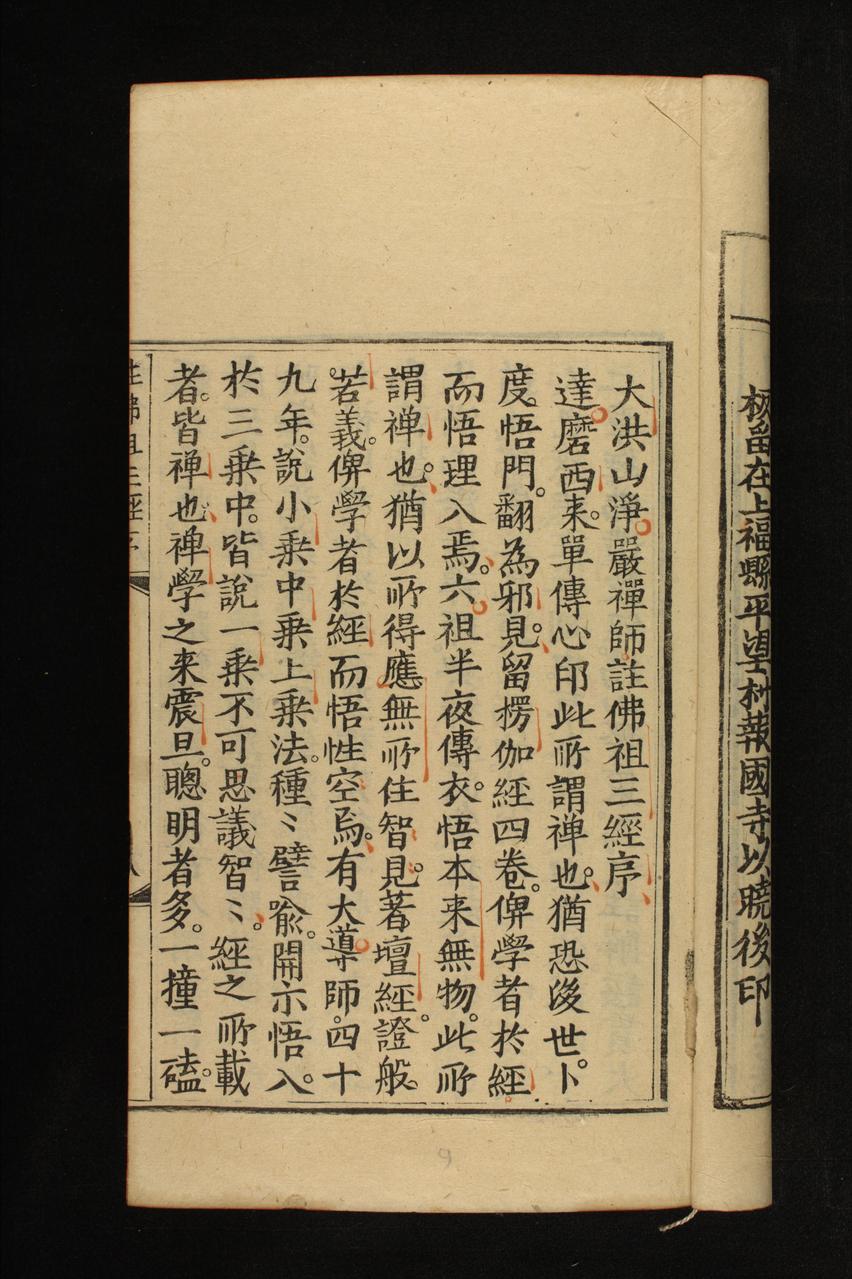 板留在上福縣平望村報國寺以曉後印
大洪山淨嚴禪師註佛祖三經序
達磨西来。單傳心印此所謂禅也。猶恐後世。卜
度。悟門。翻為邪見。留楞伽經四卷。俾學者於經
而悟理入焉。六祖半夜傳衣。悟本来無物。此所
謂禅也。猶以所得應無所住智見。著壇經。證般。
若義。俾學者於經而悟性空焉。有大導師。四十
九年。說小乘中乘上乘法。種〻譬喻。開示悟入。
於三乘中。皆說一乘不可思議智〻。經之所載
者。皆禅也禅學之来震旦。聰明者多。一撞一磕。
註佛祖三經序